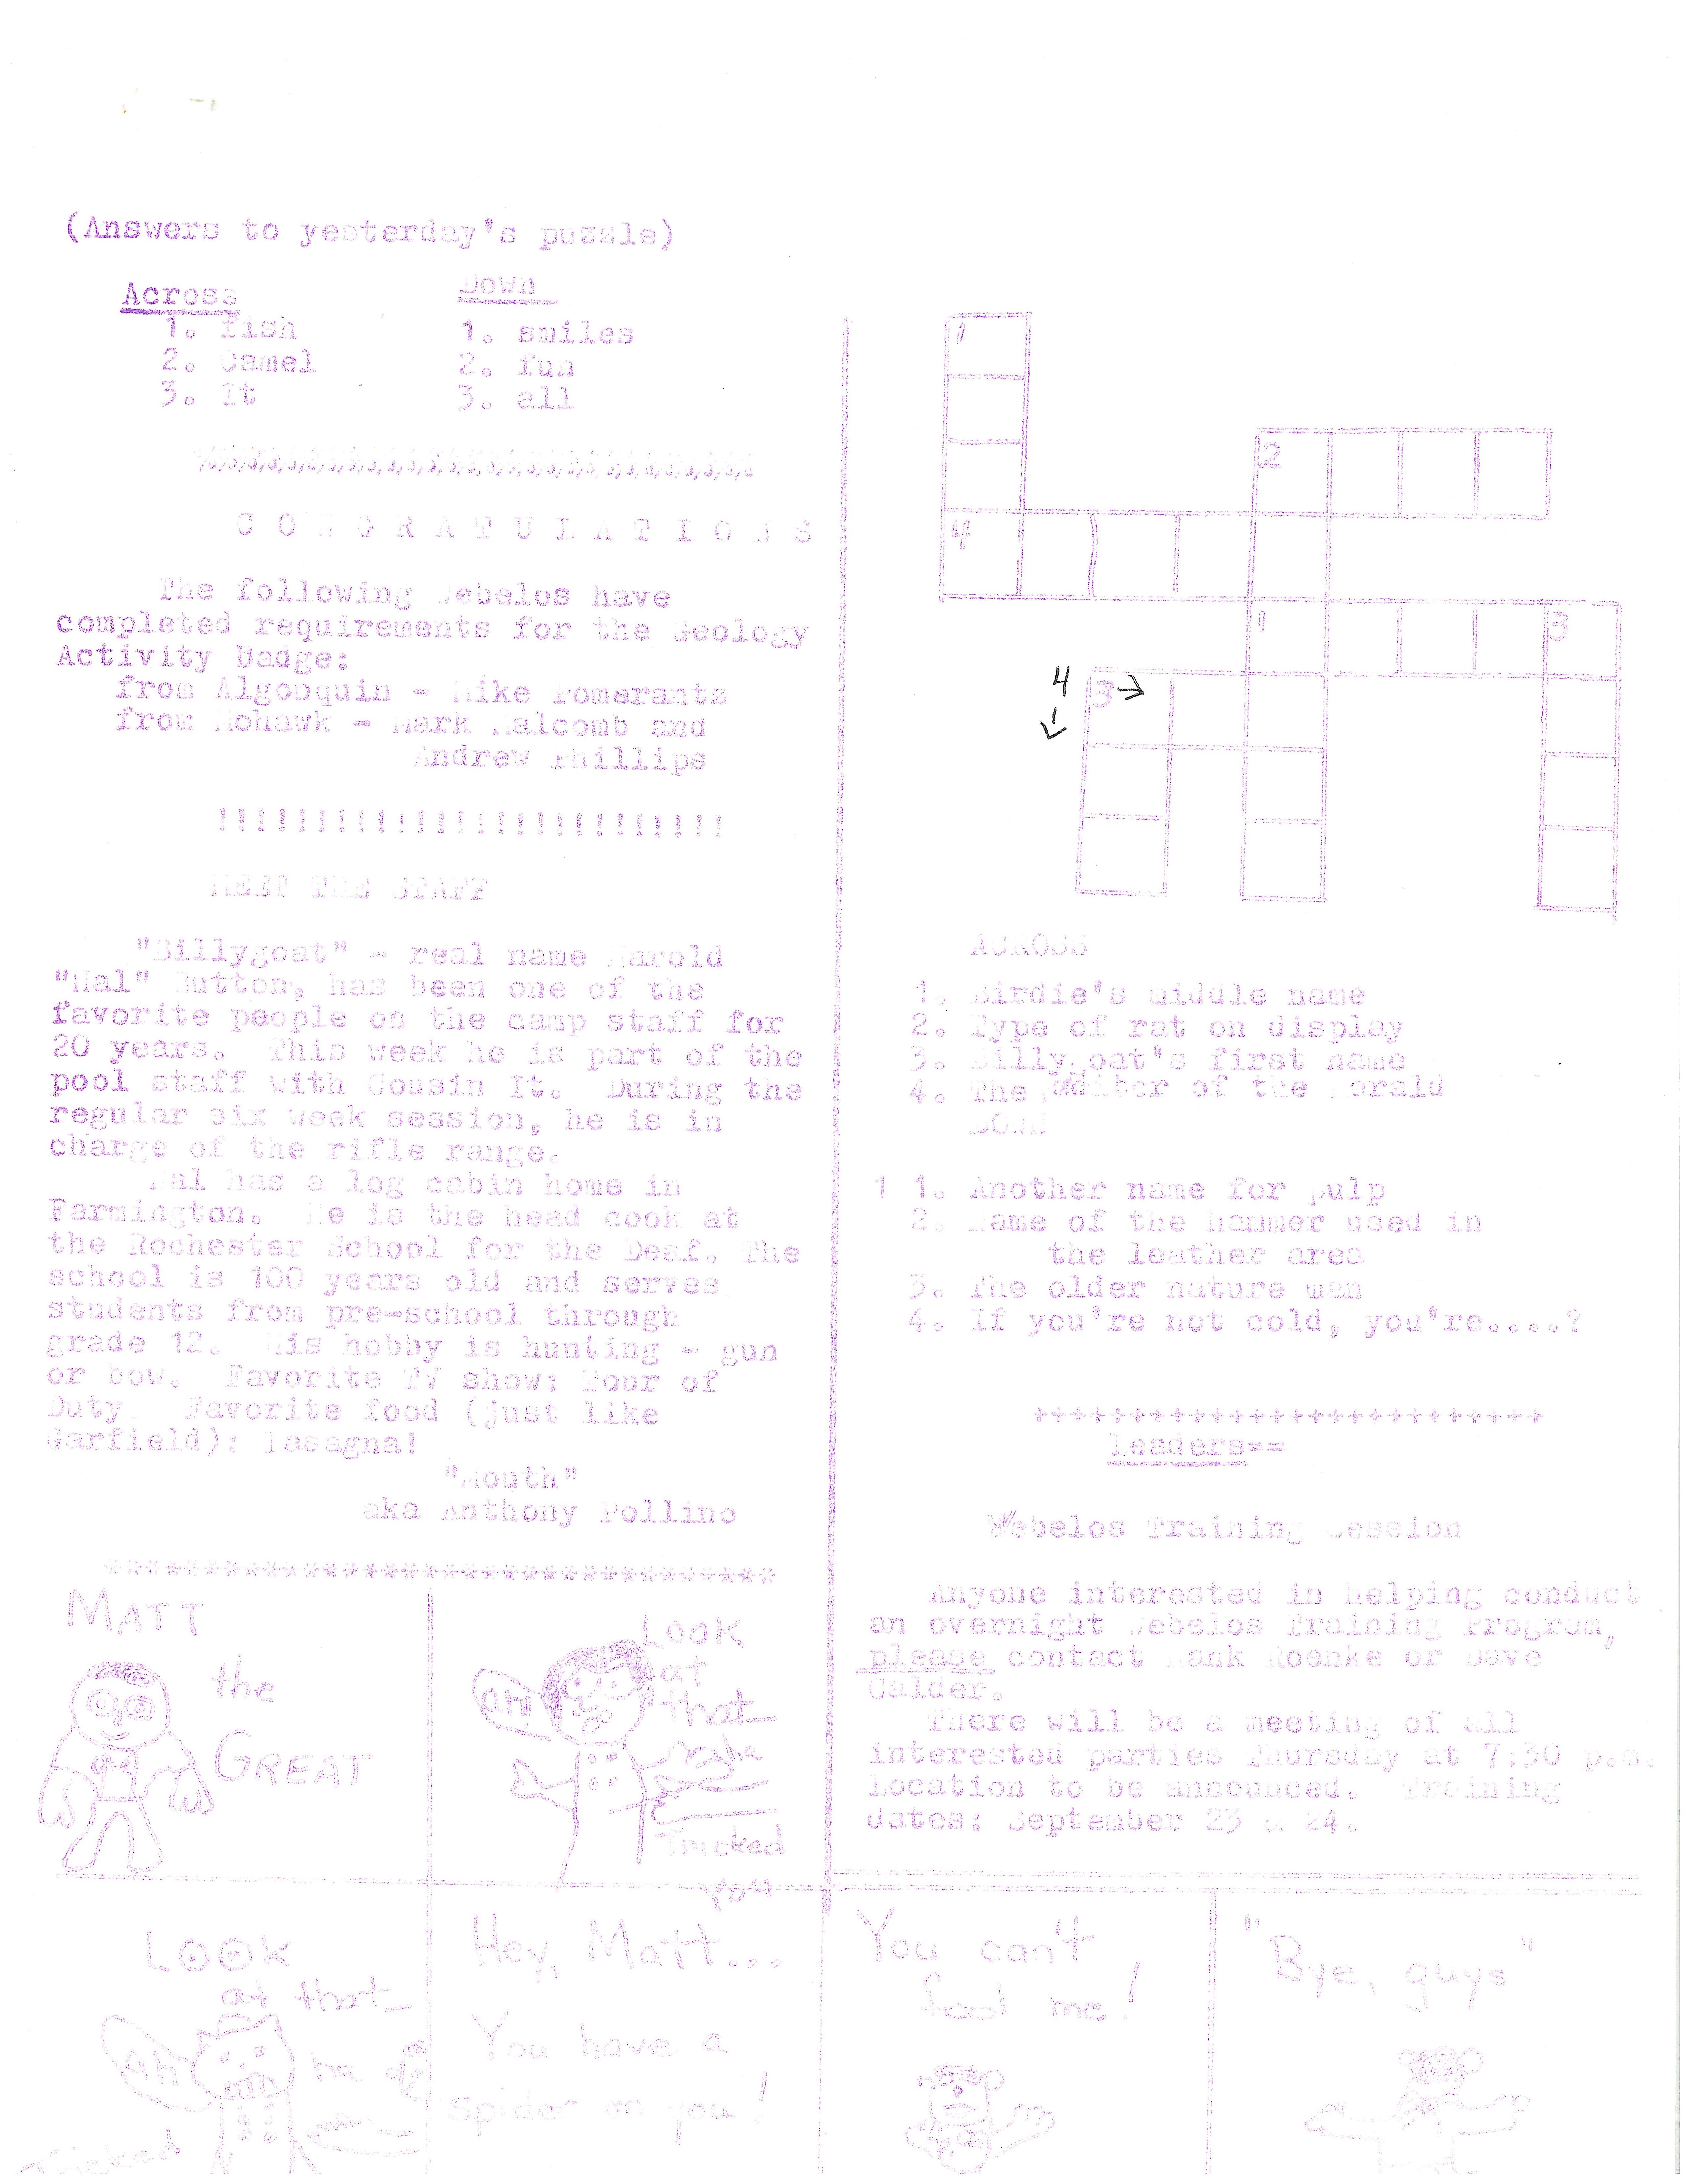 (Answers to yesterday's puzzle)
Across
1. fish
2. Camel
3. It
Down
1. smiles
2. fun
3. all
CONGRATULATIONS
The following Webelos have
completed requirements for the Geology
Activity Badge:
from Algonquin - Mike Pomerants
from Mohawk - Mark Malcomb and
Andrew Phillips
!!!!!!!!!!!!!!!!!!!!!!!!!!
MEET THE STAFF
"Billygoat" - real name Harold
"Hal" Button, has been one of the
favorite people on the camp staff for
20 years. This week he is part of the
pool staff with Cousin It. During the
regular six week session, he is in
charge of the rifle range.
Hal has a log cabin home in
Farmington. He is the head cook at
the Rochester School for the Deaf. The
school is 100 years old and serves
students from pre-school through
grade 12. His hobby is hunting - gun
or bow. Favorite TV show: Tour of
Duty. Favorite food (just like
Garfield): lasagna!
"Mouth"
aka Anthony Pollino
**********************************
MATT
the
GREAT
Oh!
Look
at
that
Tricked
you
Look
at that
Ah
ha
Tricked
Hey, Matt...
You have a
spider on you!
1
2
4
1
3
4
3
ACROSS
1. Birdie's middle name
2. Type of rat on display
3. Billygoat's first name
4. The editor of the Herald
DOWN
1 1. Another name for pulp
2. Name of the hammer used in
the leather area
3. The older nature man
4. If you're not cold, you're....?
++++++++++++++++++++++++++
leaders==
Webelos Training Session
Anyone interested in helping conduct
an overnight Webelos Training Program,
please contact Hank Roenke or Dave
Calder.
There will be a meeting of all
interested parties Thursday at 7:30 p.m.
Location to be announced. Training
dates: September 23 & 24.
You can't
fool me!
"Bye, guys"